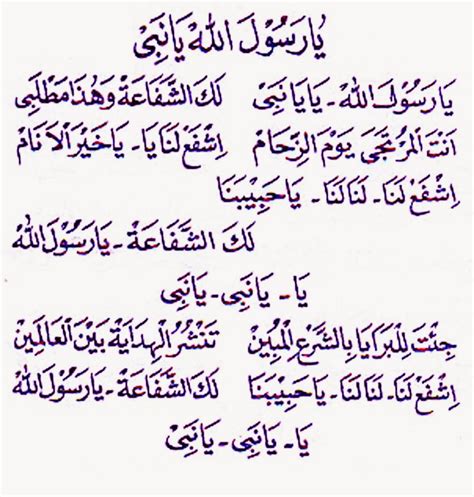 يَارَسُوْلَ اللّٰهْ يَانَبِى
يَارَسُوْلَ اللّٰهْ - يَايَانَبِى لَكَ الشَّفَاعَةْ وَهٰذَا مَطْلَبِى
اَنْتَ الْمُرْتَجَى يَوْمَ الزِّحَامْ اِشْفَعْ لَنَا يَا - يَاخَيْرَ الْاَنَامْ
اِشْفَعْ لَنَا - لَنَا لَنَا - يَاحَبِيْبَنَا
لَكَ الشَّفَاعَةْ - يَارَسُوْلَ اللّٰهْ
يَا - يَانَبِى - يَانَبِى
جِئْتَ لِلْبَرَايَا بِالشَّرْعِ الْمُبِيْنْ تَنْشُرُ الْهِدَايَةْ بَيْنَ الْعَالَمِيْنْ
اِشْفَعْ لَنَا - لَنَا لَنَا - يَاحَبِيْبَنَا لَكَ الشَّفَاعَةْ - يَارَسُوْلَ اللّٰهْ
يَا - يَانَبِى - يَانَبِى